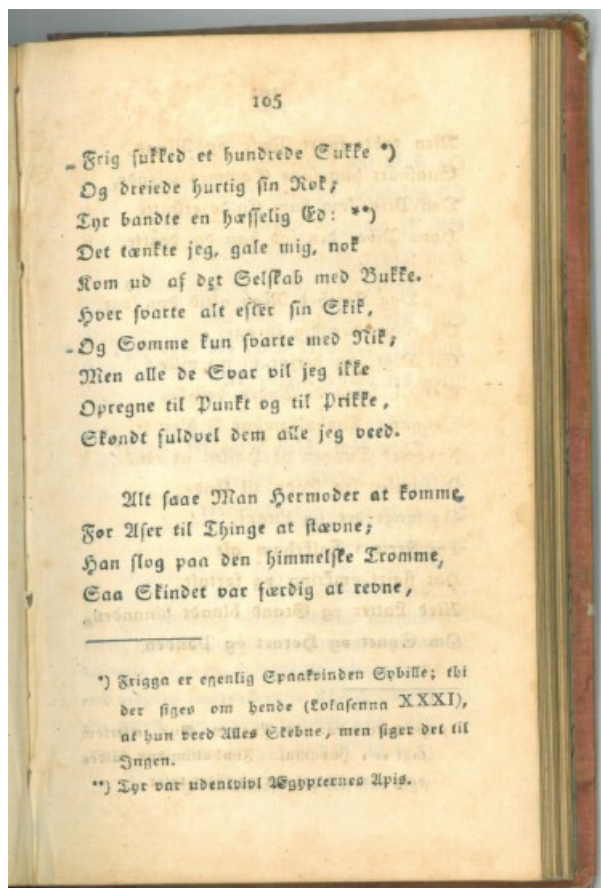 105
Frig sukked et hundrede Sukke *)
Og dreiede hurtig sin Rok;
Tyr bandte en hæsselig Ed: **)
Det tænkte jeg, gale mig, nok
Kom ud af det Selskab med Bukke.
Hver svarte alt efter sin Skik,
Og Somme kun svarte med Nik;
Men alle de Svar vil jeg ikke
Opregne til Punkt og til Prikke,
Skøndt fuldvel dem alle jeg veed.
Alt saae Man Hermoder at komme,
For Aser til Thinge at stævne;
Han slog paa den himmelske Tromme,
Saa Skindet var færdig at revne,
*) Frigga er egenlig Spaakvinden Sybille; thi
der siges om hende (Lokasenna XXXI),
at hun veed Alles Skebne, men siger det til
Ingen.
**) Tyr var udentvivl Ægypternes Apis.